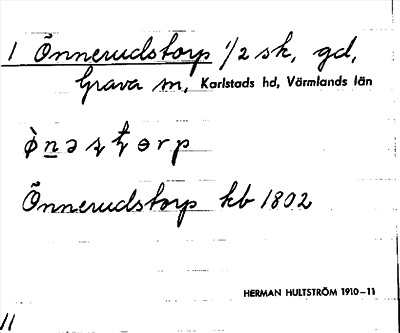 1 Önnerudstorp 1/2 sk, gd,
Grava sn, Karlstads hd, Värmlands län
Önnerudstorp kb 1802
HERMAN HULTSTRÖM 1910–11
11